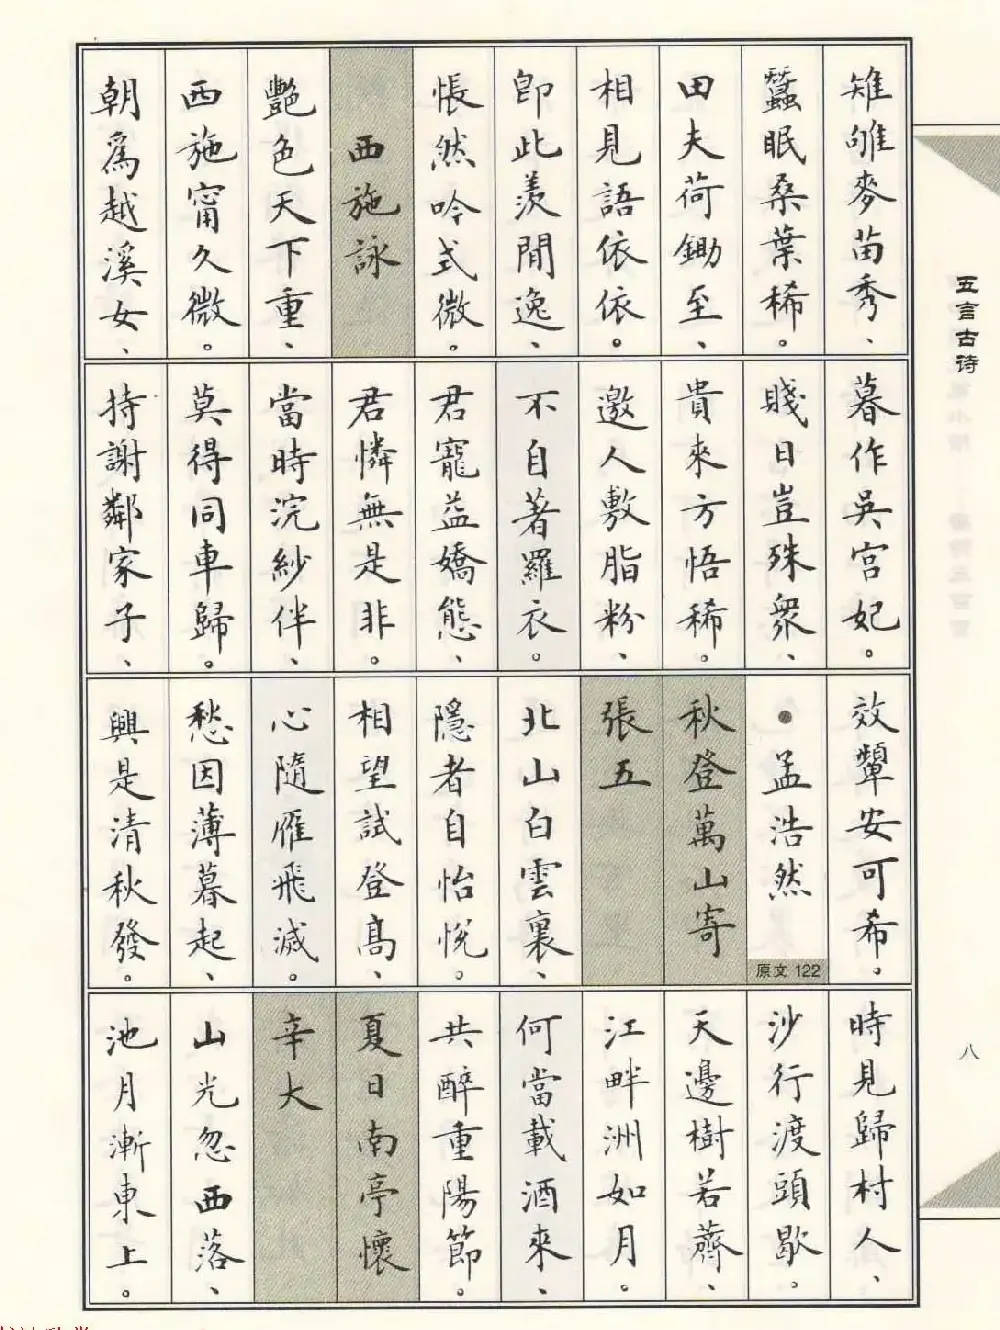 雉雊麥苗秀、
蠶眠桑葉稀。
田夫荷鋤至、
相見語依依。
即此羨閒逸、
悵然吟式微。
西施詠
艷色天下重、
西施甯久微。
朝爲越溪女、
暮作吳宮妃。
賤日豈殊衆、
貴來方悟稀。
邀人敷脂粉、
不自著羅衣。
君寵益嬌態、
君憐無是非。
當時浣紗伴、
莫得同車歸。
持謝鄰家子、
效顰安可希。
●孟浩然
原文 122
秋登萬山寄
張五
北山白雲裏、
隱者自怡悅。
相望試登高、
心隨雁飛滅。
愁因薄暮起、
興是清秋發。
時見歸村人、
沙行渡頭歇。
天邊樹若薺、
江畔洲如月。
何當載酒來、
共醉重陽節。
夏日南亭懷
辛大
山光忽西落、
池月漸東上。
五言古诗
八